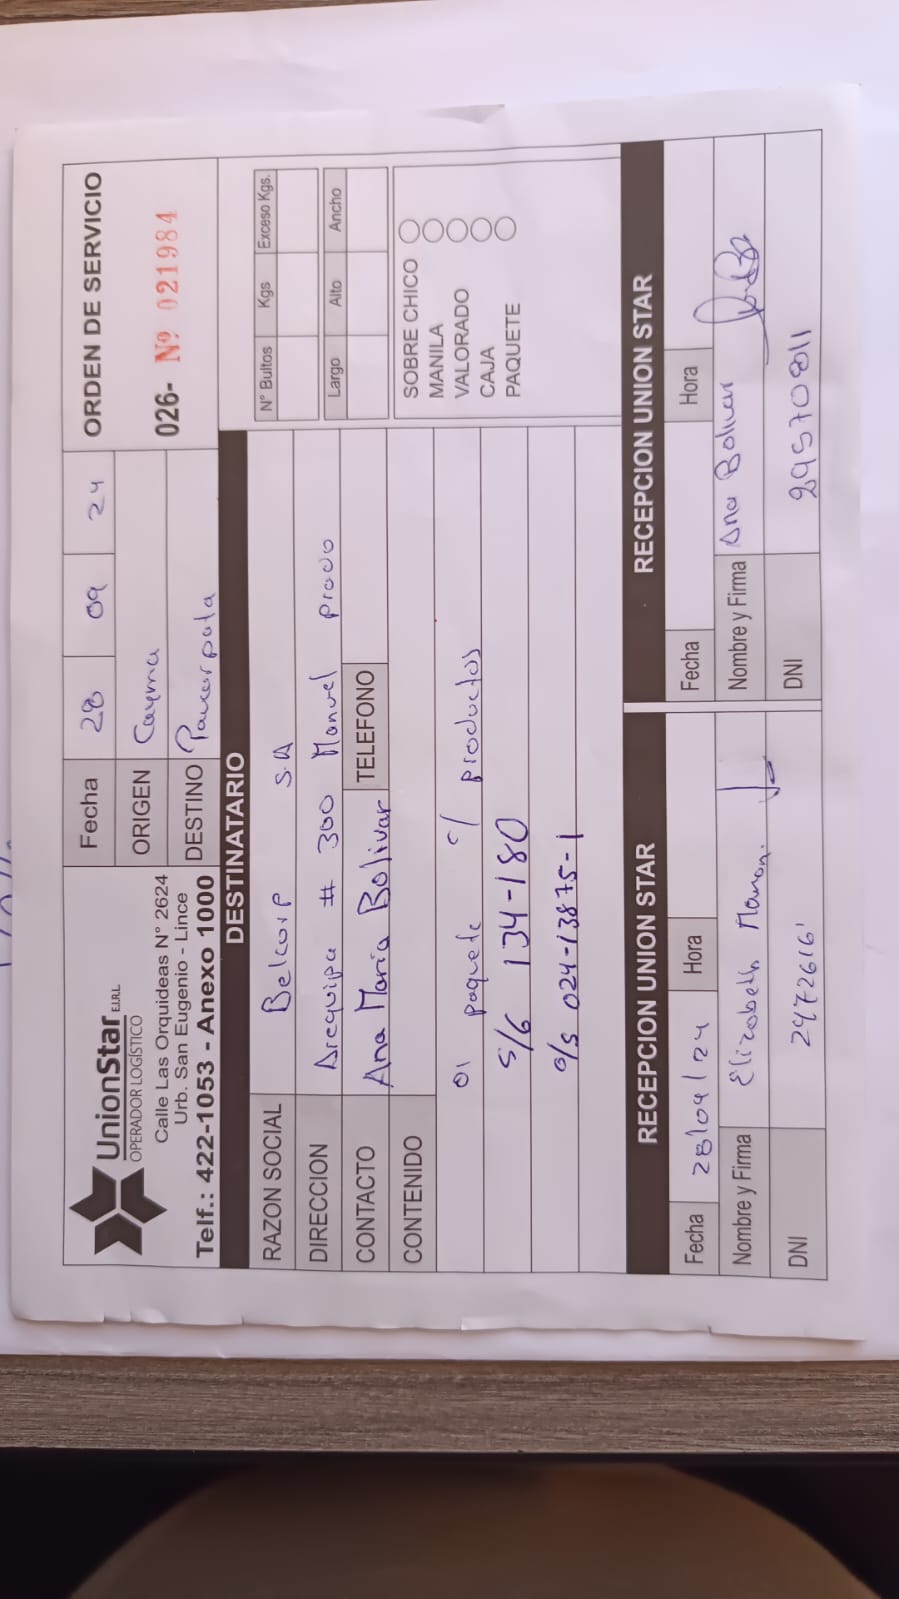 UnionStar E.I.R.L.
OPERADOR LOGÍSTICO
Calle Las Orquideas N° 2624
Urb. San Eugenio - Lince
Telf.: 422-1053 - Anexo 1000
Fecha 28 09 24
ORIGEN Cayma
DESTINO Paucarpata
ORDEN DE SERVICIO
026- Nº 021984
DESTINATARIO
RAZON SOCIAL Belcorp S.A
DIRECCION Arequipa # 300 Manuel prado
CONTACTO Ana Maria Bolivar TELEFONO
CONTENIDO
01 paquete c/ productos
S/G 134-180
O/S 024-13875-1
N° Bultos Kgs Exceso Kgs.
Largo Alto Ancho
SOBRE CHICO
MANILA
VALORADO
CAJA
PAQUETE
RECEPCION UNION STAR
Fecha 28/09/24 Hora
Nombre y Firma Elizabeth Mamani
DNI 2472616
RECEPCION UNION STAR
Fecha Hora
Nombre y Firma Ana Bolivar
DNI 29570811